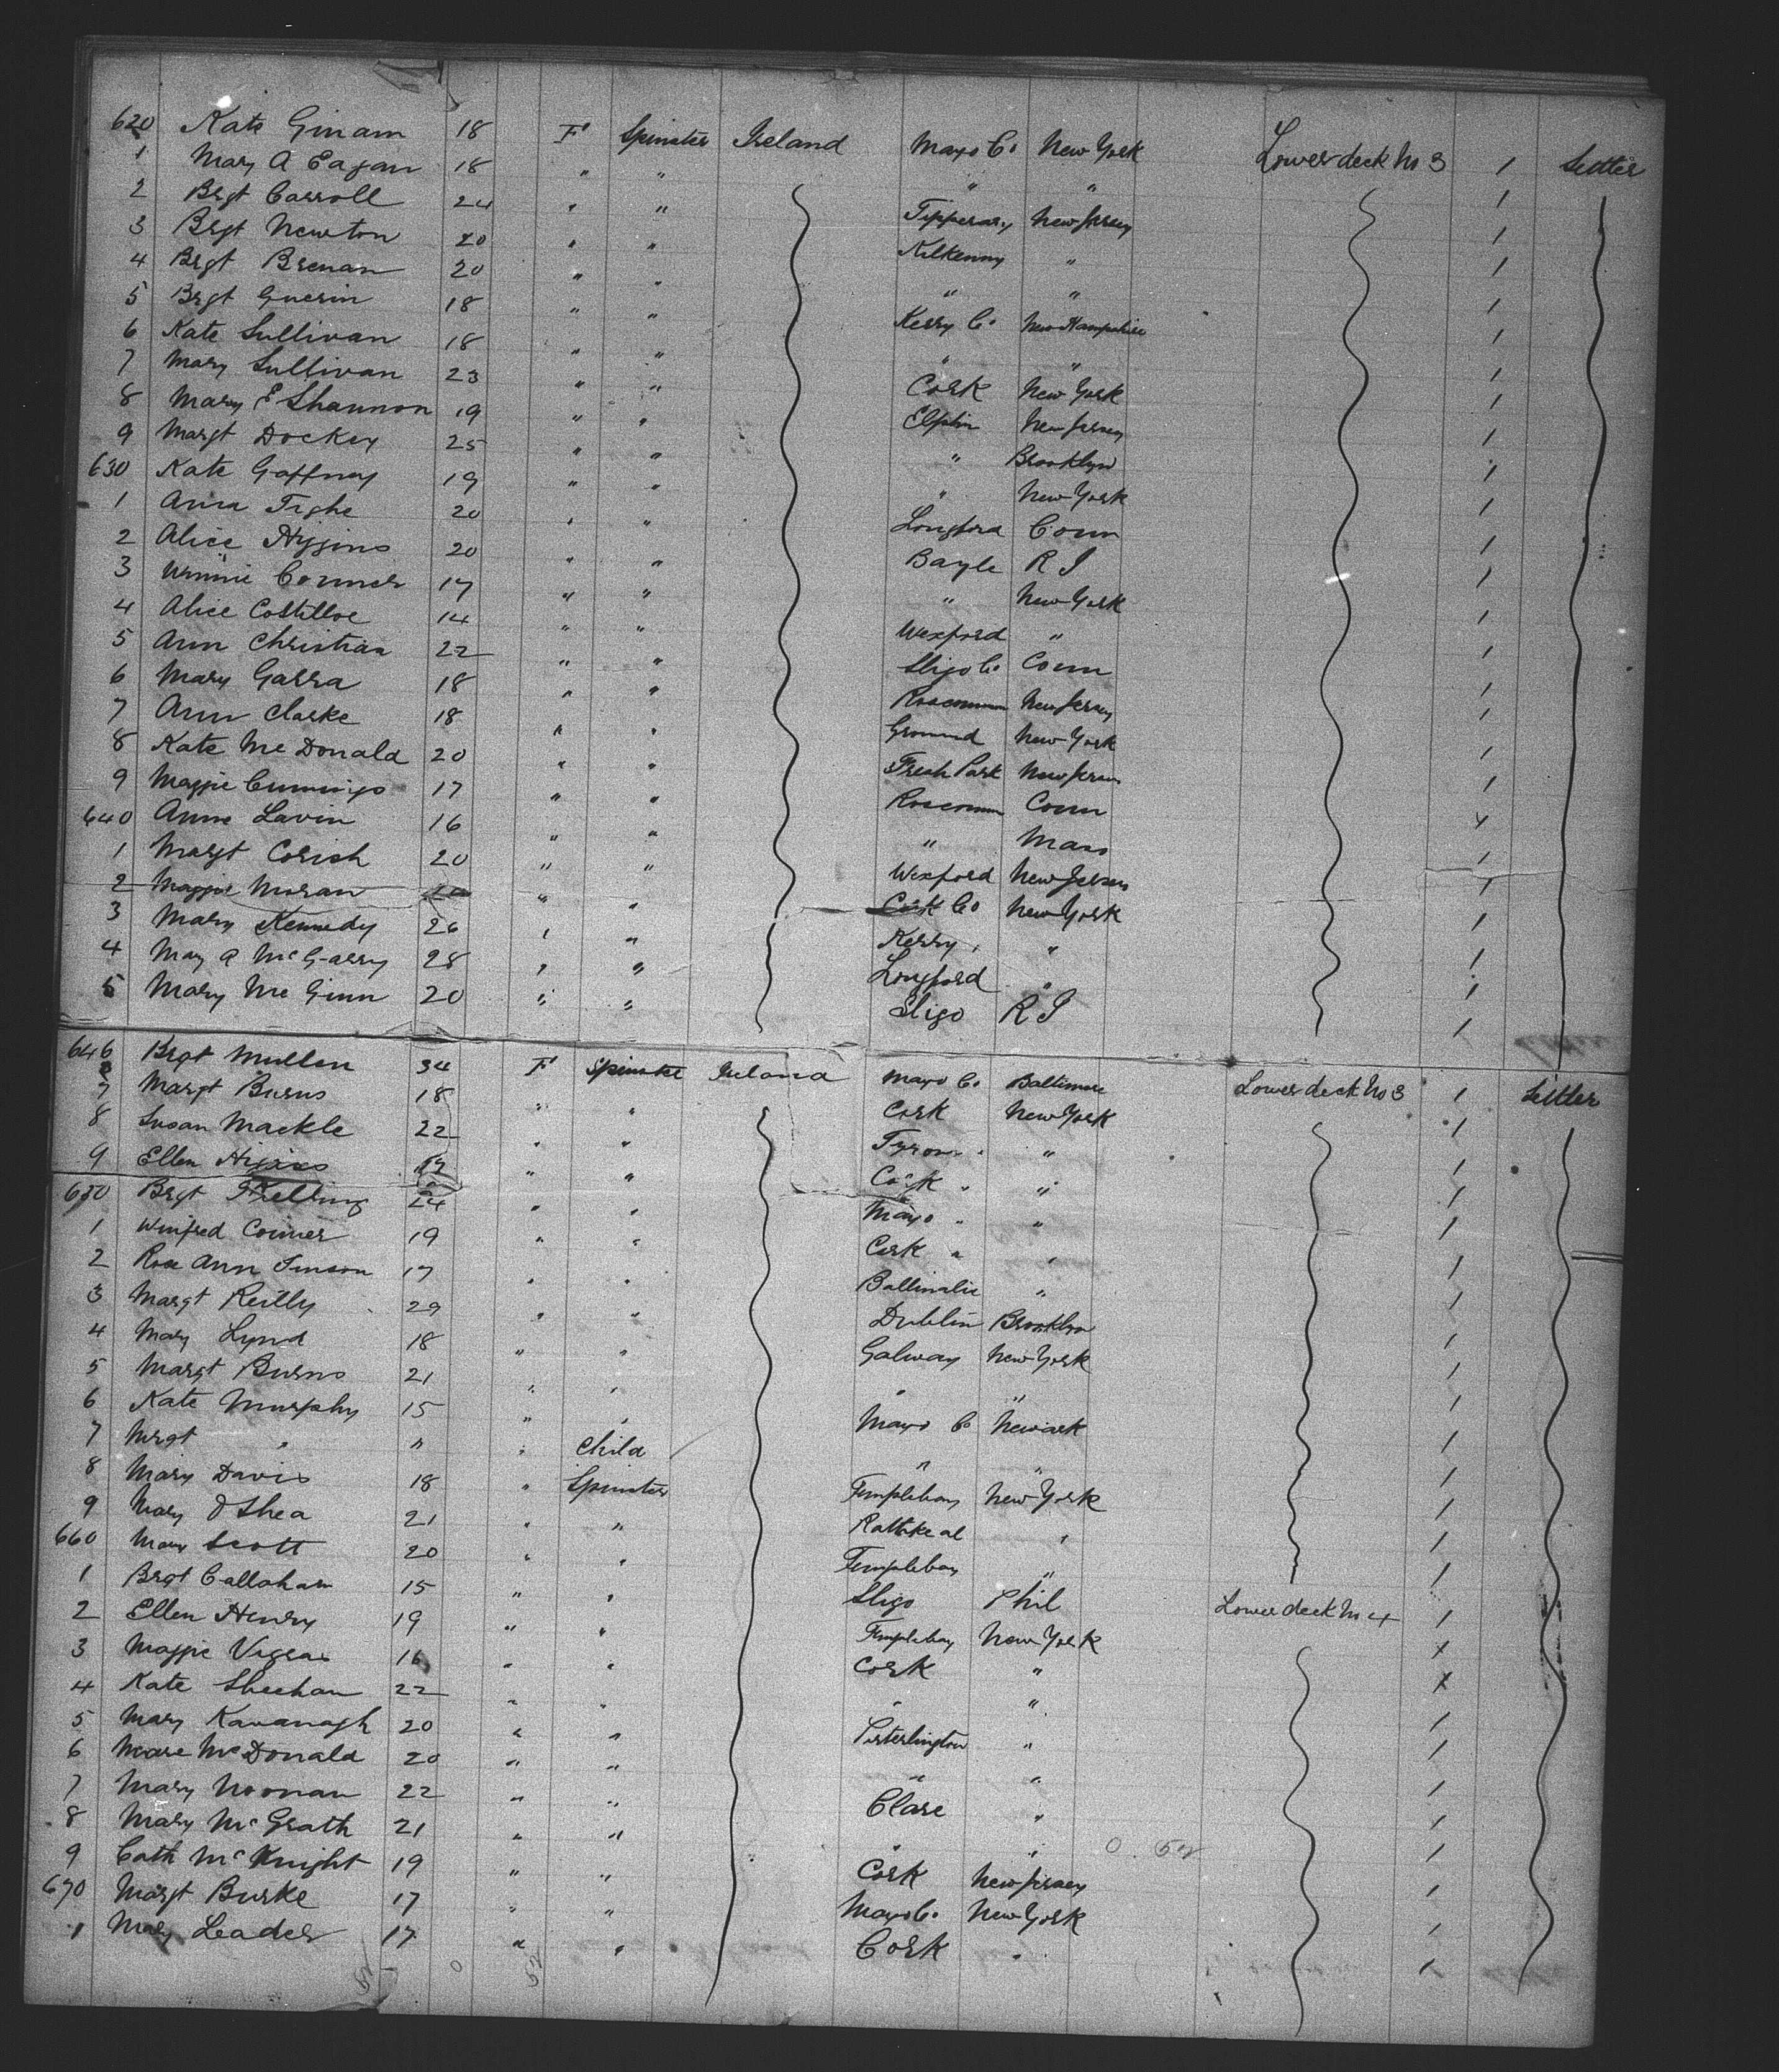 620 Kate Ginam 18 F Spinster Ireland Mayo Co New York Lower deck No 3 1 Settler
1 Mary A Eagan 18 " " " " 1
2 Brgt Carroll 24 " " Tipperary New Jersey 1
3 Brgt Newton 20 " " Kilkenny " 1
4 Brgt Brenan 20 " " " " 1
5 Brgt Guerin 18 " " Kerry Co New Hampshire 1
6 Kate Sullivan 18 " " " " 1
7 Mary Sullivan 23 " " Cork New York 1
8 Mary E Shannon 19 " " Elphin New Jersey 1
9 Margt Dockey 25 " " " Brooklyn 1
630 Kate Gaffney 19 " " " New York 1
1 Anna Tighe 20 " " Longford Conn 1
2 Alice Higgins 20 " " Bayle R I 1
3 Winnie Connor 17 " " " New York 1
4 Alice Costelloe 14 " " Wexford " 1
5 Ann Christian 22 " " Sligo Co Conn 1
6 Mary Garra 18 " " Roscommon New Jersey 1
7 Ann Clarke 18 " " New York 1
8 Kate McDonald 20 " " Fresh Park New Jersey 1
9 Maggie Cummings 17 " " Roscommon Conn 1
640 Anne Lavin 16 " " " Mass 1
1 Margt Corish 20 " " Wexford New Jersey 1
2 Maggie Moran " " Cork Co New York 1
3 Mary Kennedy 26 " " Kerry " 1
4 Mary A McGarry 28 " " Longford " 1
5 Mary McGinn 20 " " Sligo R I 1
646 Brgt Mullen 34 F Spinster Ireland Mayo Co Baltimore Lower deck No 3 1 Settler
7 Margt Burns 18 " " Cork New York 1
8 Susan Mackle 22 " " Tyrone " 1
9 Ellen 17 " " Cork " " 1
650 Brgt 24 " " Mayo " " 1
1 Winifred Conner 19 " " Cork " " 1
2 Rose Ann 17 " " Ballinalie " 1
3 Margt Reilly 29 " " Dublin Brooklyn 1
4 Mary Lynd 18 " " Galway New York 1
5 Margt Burns 21 " " " " 1
6 Kate Murphy 15 " " Mayo Co Newark 1
7 Mrgt " " " Child " " 1
8 Mary Davis 18 " Spinster Templeboy New York 1
9 Mary O Shea 21 " " Rathkeal " 1
660 Mary Scott 20 " " Templeboy " 1
1 Brgt Callaham 15 " " Sligo Phil Lower deck No 4 1
2 Ellen Henry 19 " " Templeboy New York x
3 Maggie 16 " " Cork " x
4 Kate Sheehan 22 " " " " 1
5 Mary Kavanagh 20 " " Porterlington " 1
6 McDonald 20 " " " " 1
7 Mary Noonan 22 " " Clare " 1
8 Mary McGrath 21 " " " " 1
9 Cath McKnight 19 " " Cork New Jersey 1
670 Margt Burke 17 " " Mayo Co New York 1
1 Mary Leader 17 " " Cork " 1